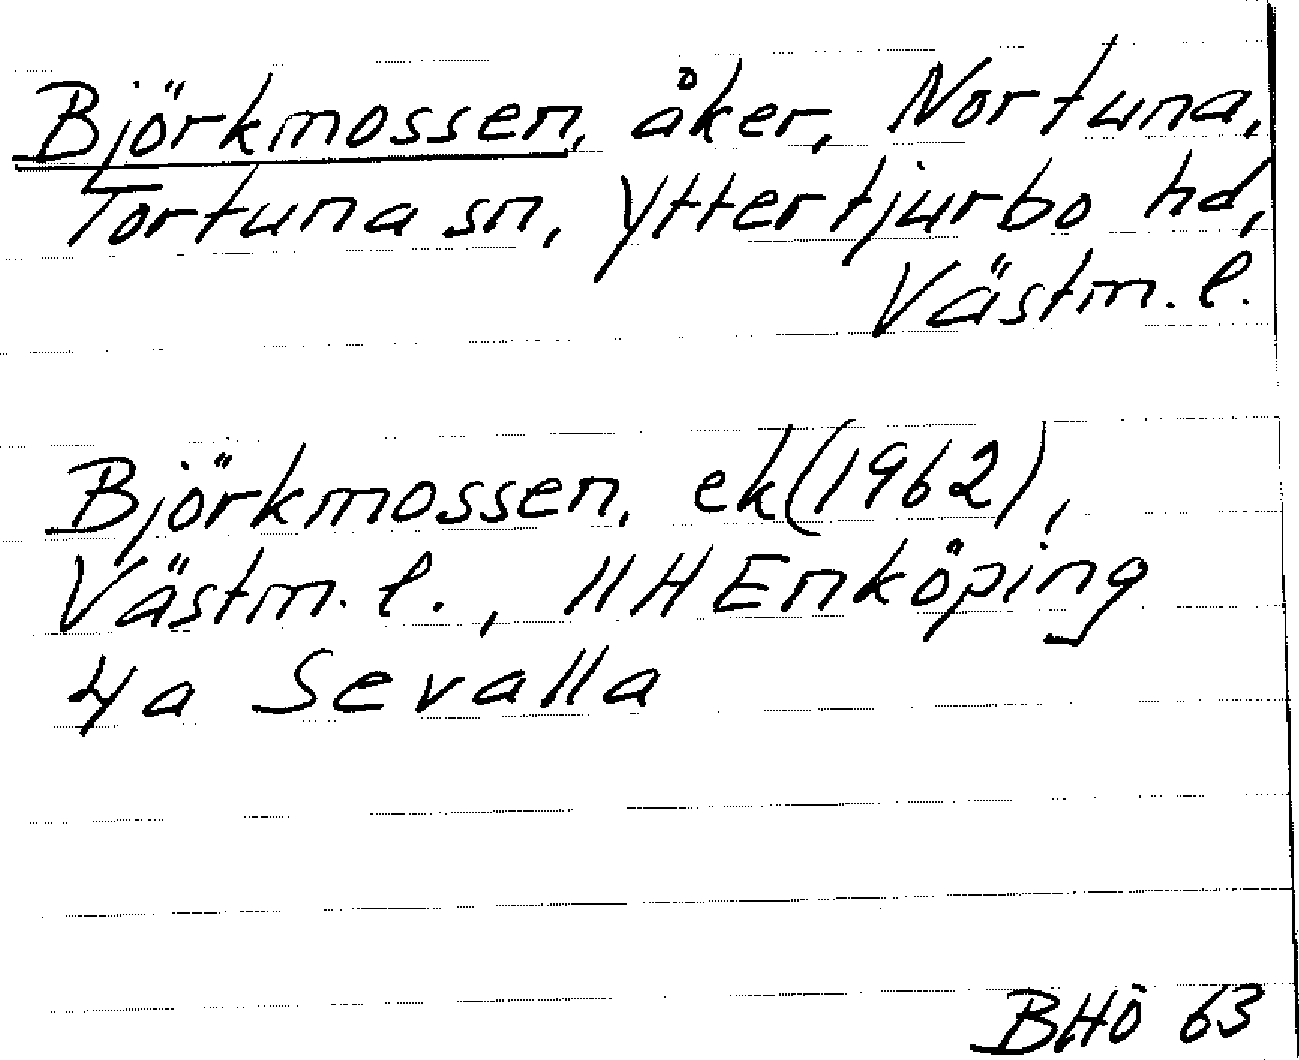 Björkmossen, åker, Nortuna,
Tortuna sn, Yttertjurbo hd,
Västm. l.
Björkmossen, ek (1962),
Västm. l., 11H Enköping
4a Sevalla
BHÖ 63